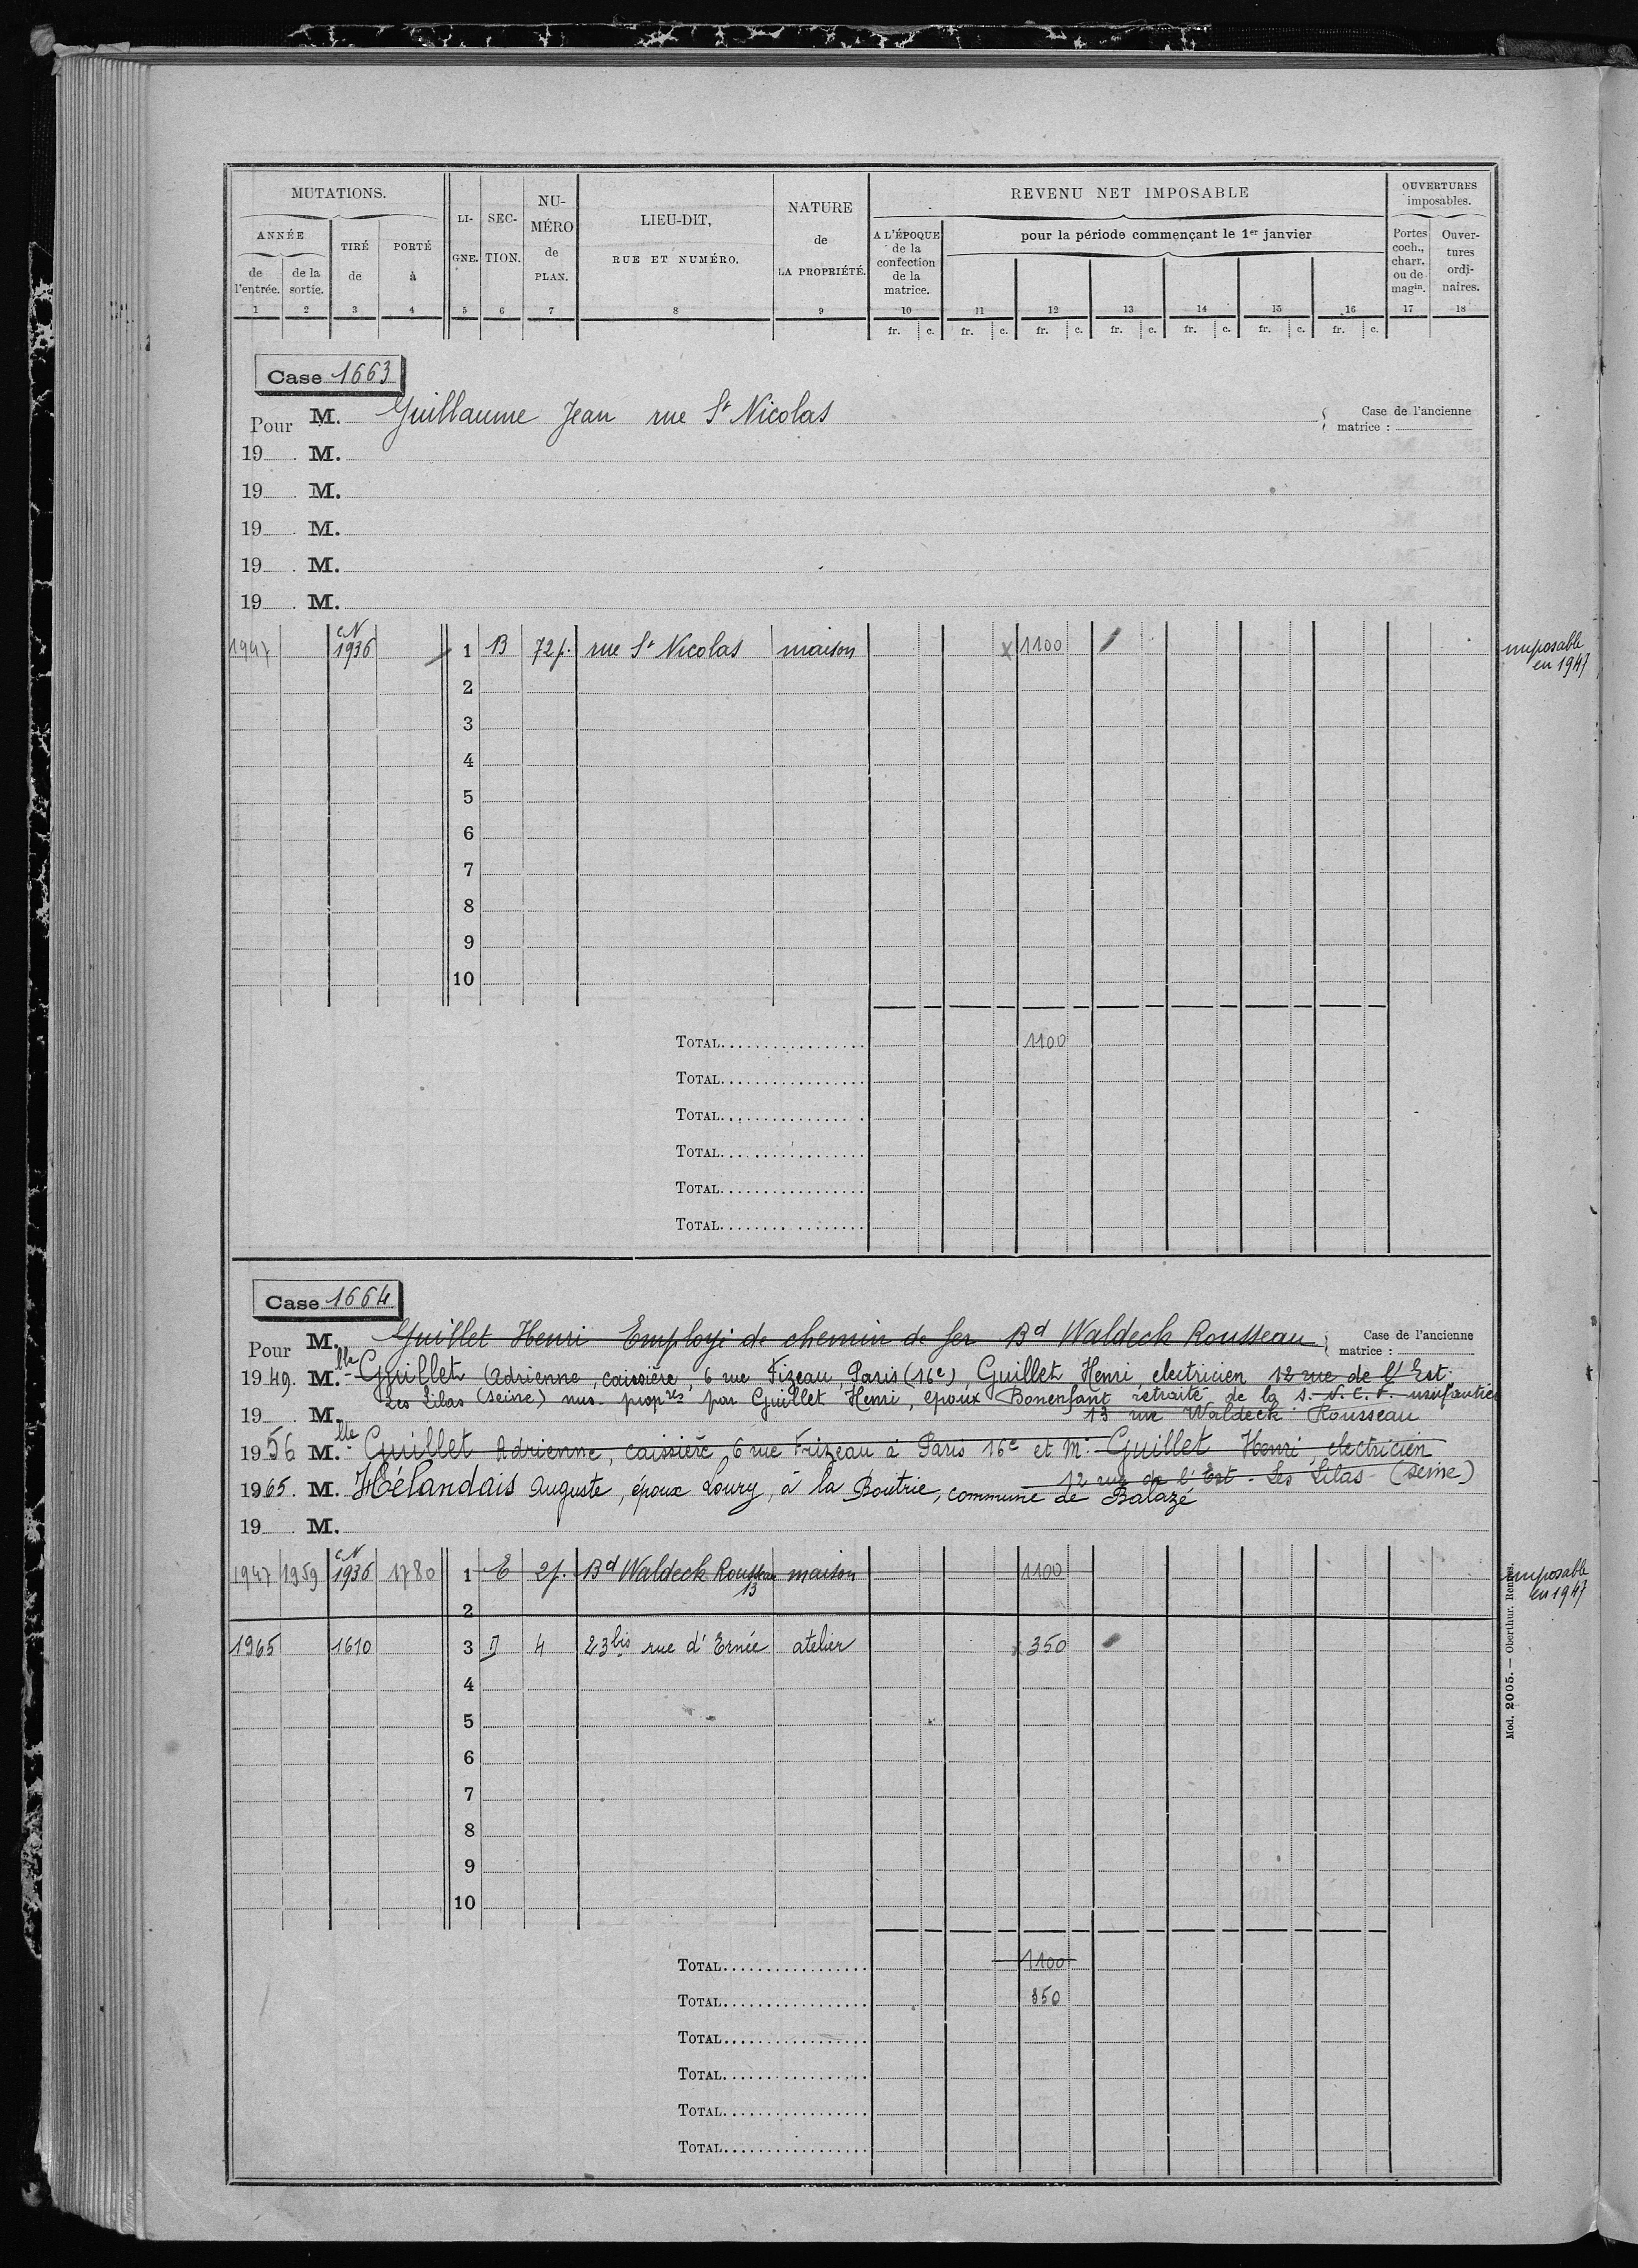 MUTATIONS.
ANNÉE
de l'entrée.
de la sortie.
TIRÉ de
PORTÉ à
LI-GNE.
SEC-TION.
NU-MÉRO de PLAN.
LIEU-DIT,
RUE ET NUMÉRO.
NATURE de LA PROPRIÉTÉ.
REVENU NET IMPOSABLE
A L'ÉPOQUE de la confection de la matrice.
pour la période commençant le 1er janvier
OUVERTURES imposables.
Portes coch., charr. ou de magin.
Ouver-tures ordi-naires.
1 2 3 4 5 6 7 8 9 10 11 12 13 14 15 16 17 18
fr. c. fr. c. fr. c. fr. c. fr. c. fr. c. fr. c.
Case 1663
Pour M. Guillaume Jean rue St Nicolas
Case de l'ancienne matrice :
19 M.
19 M.
19 M.
19 M.
19 M.
1947 cN 1936 1 B 72p. rue St Nicolas maison x 1100 imposable en 1947
2
3
4
5
6
7
8
9
10
TOTAL 1100
TOTAL
TOTAL
TOTAL
TOTAL
TOTAL
Case 1664
Pour M. Guillet Henri Employé de chemin de fer Bd Waldeck Rousseau
Case de l'ancienne matrice :
1949. M.lle Guillet Adrienne, caissière, 6 rue Fizeau, Paris (16e) Guillet Henri, electricien 12 rue de l'Est
Les Lilas (Seine) nus-propres par Guillet Henri, époux Bonenfant retraité de la S.N.C.F. usufruitier
19 M. 13 rue Waldeck Rousseau
1956 M.lle Guillet Adrienne, caissière 6 rue Frizeau à Paris 16e et Mr Guillet Henri, electricien
12 rue de l'Est. Les Lilas (Seine)
1965. M. Hélandais Auguste, époux Loury, à la Boutrie, commune de Balazé
19 M.
1947 1959 cN 1936 1780 1 E 2p. Bd Waldeck Rousseau 13 maison 1100 imposable en 1947
2
1965 1610 3 D 4 23bis rue d'Ernée atelier x 350
4
5
6
7
8
9
10
TOTAL 1100
TOTAL 350
TOTAL
TOTAL
TOTAL
TOTAL
Mod. 2005. — Oberthur. Rennes.